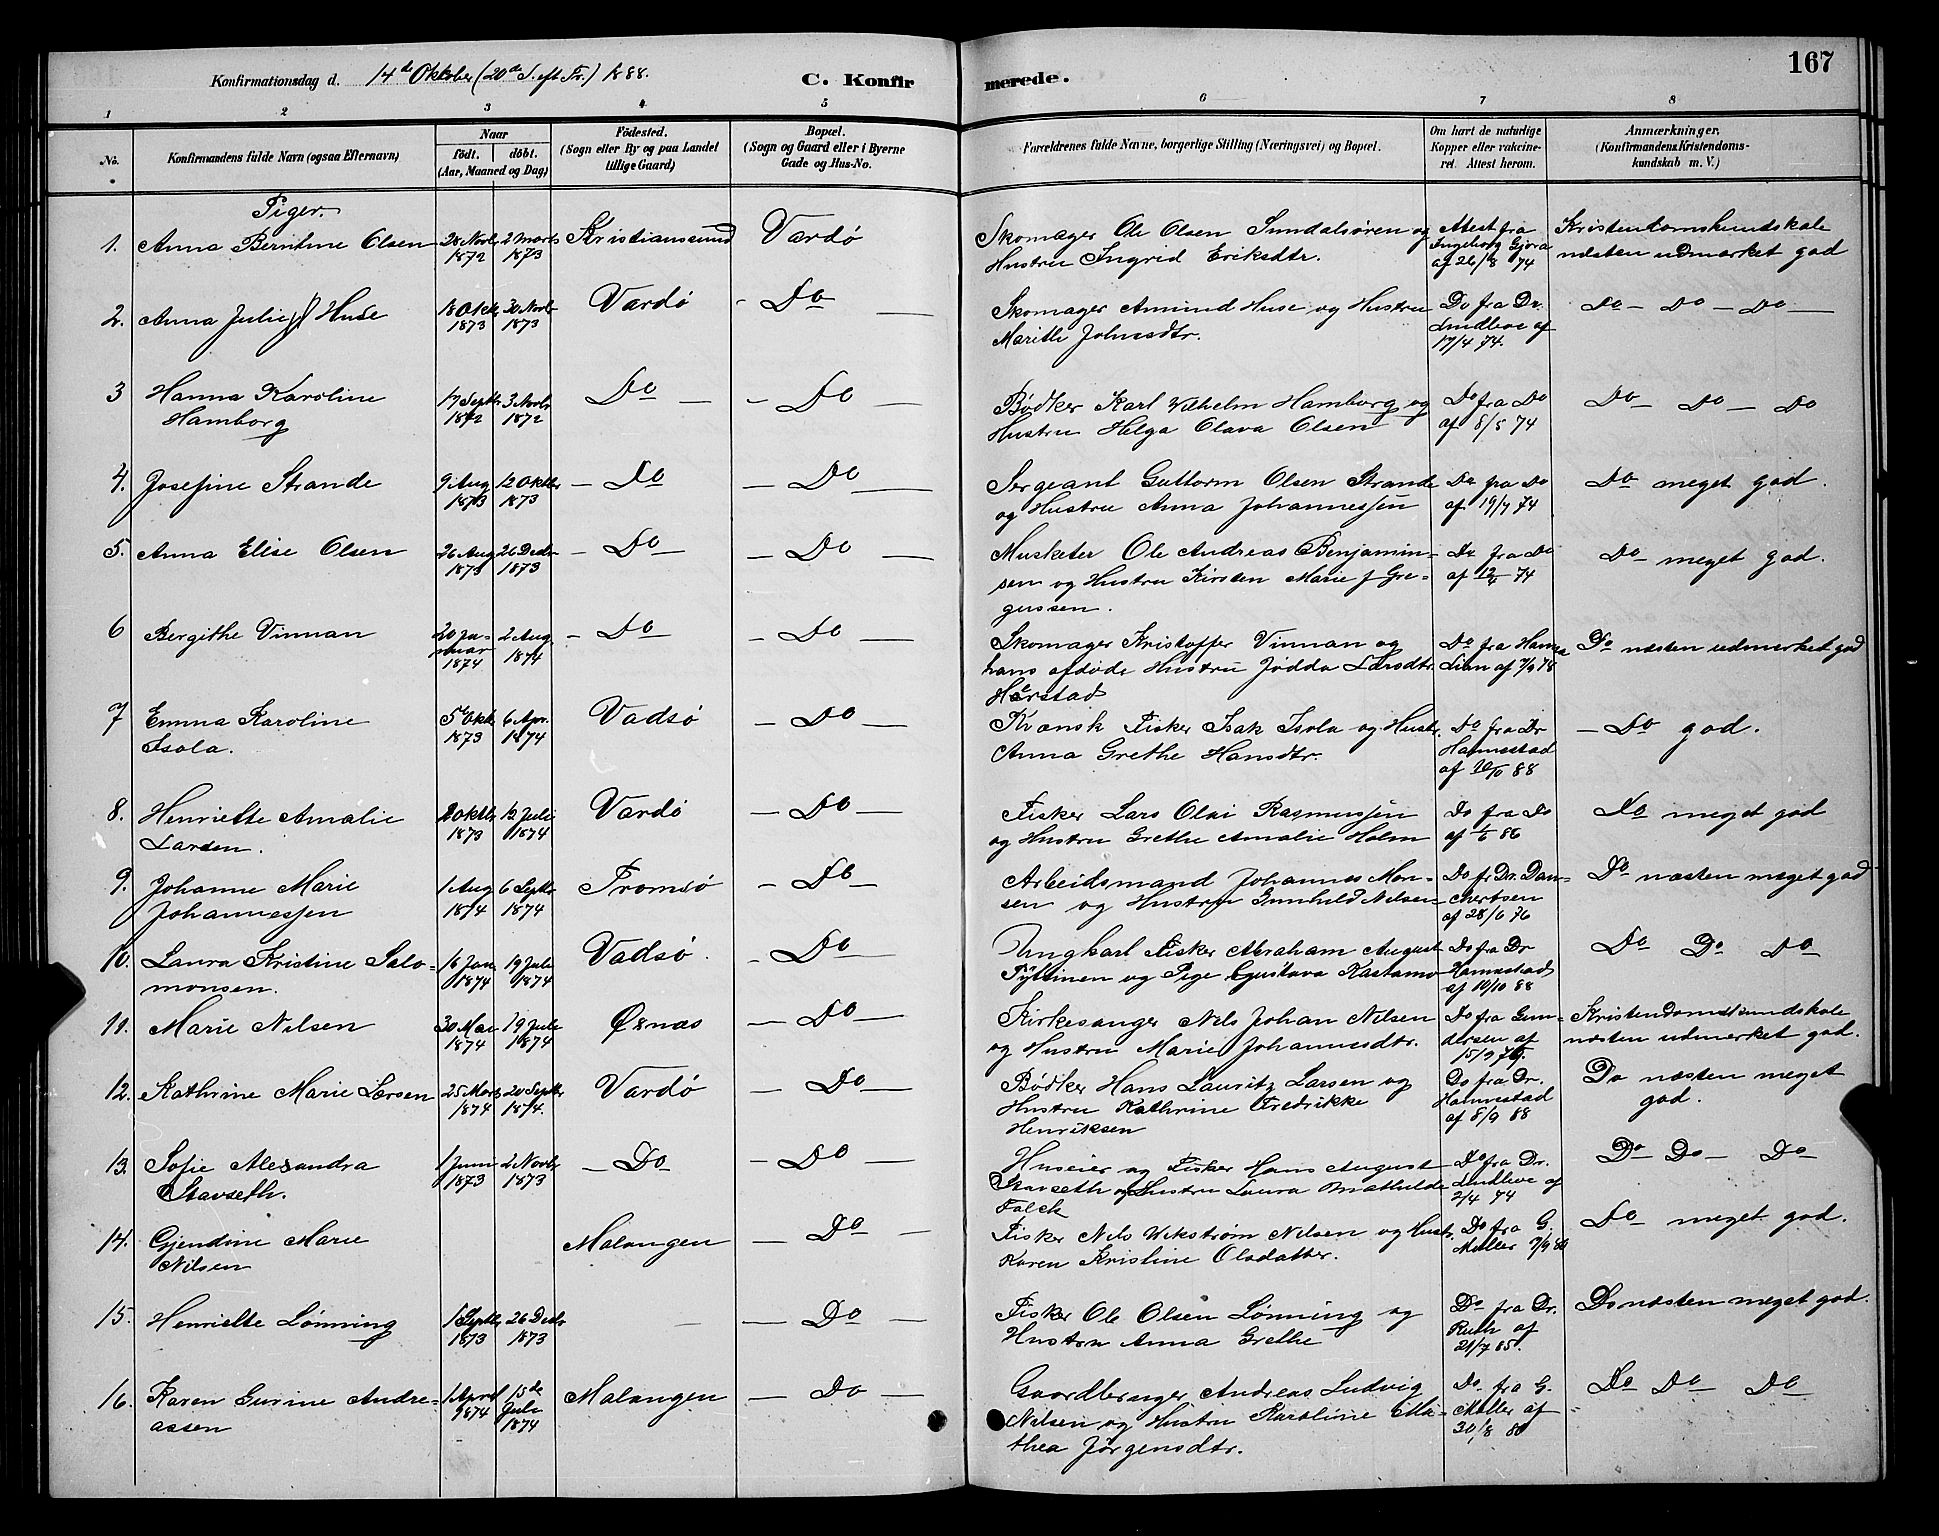 167
Konfirmationsdag d. 14de Oktober (20de S. eft Tr.) 1888.
C. Konfirmerede.
1 2 3 4 5 6 7 8
No.
Konfirmandens fulde Navn (ogsaa Efternavn)
Naar
födt. döbt.
(Aar, Maaned og Dag)
Födested.
(Sogn eller By og paa Landet
tillige Gaard)
Bopæl.
(Sogn og Gaard eller i Byerne
Gade og Hus-No.
Forældrenes fulde Navne, borgerlige Stilling (Næringsvei) og Bopæl.
Om havt de naturlige
Kopper eller vakcine-
ret. Attest herom.
Anmærkninger.
(Konfirmandens Kristendoms-
kundskab m. V.)
Piger.
1. Anna Berntine Olsen 28 Novb. 1872 2 Marts 1873 Kristianssund Vardø
Skomager Ole Olsen Sundalsøren og
Hustru Ingrid Eriksdtr.
Attest fra
Ingeborg Gjøra
af 26/8 74
Kristendomskundskab
næsten udmærket god
2. Anna Julie Huse 18 Oktb. 1873 30 Novb. 1873 Vardø - Do —
Skomager Amund Huse og Hustru
Marith Johnsdtr.
Do fra Dr.
Lindboe af
17/4 74.
Do — Do — Do —
3 Hanna Karoline
Hamborg
17 Septb. 1872 3 Novb. 1872 Do — - Do —
Bødker Karl Wilhelm Hamborg og
Hustru Helga Olava Olsen
Do fra Do
af 8/5 74
Do — Do — Do
4. Josefine Strande 9 Aug 1873 12 Oktbr 1873 - Do — Do —
Sergeant Guttorm Olsen Strande
og Hustru Anna Johannessen
Do fra Do
af 19/7 74
Do meget god.
5. Anna Elise Olsen 26 Aug 1873 26 Decbr 1873 - Do — — Do —
Musketer Ole Andreas Benjamin-
sen og Hustru Kirsten Marie f Gre-
gussen.
Do fra Do
af 12/4 74
Do — meget god.
6 Bergithe Vinnan 20 Ja-
nuar
1874 2 Aug 1874 - Do — — Do —
Skomager Kristoffer Vinnan og
hans afdøde Hustru Jødda Larsdtr.
Harstad
Do fra Hanna
Lien af 7/9 78
Do næsten udmærket god
7 Emma Karoline
Isola.
5 Okt. 1873 6 Apr. 1874 Vadsø — Do —
Kvænsk Fisker Isak Isola og Hustr.
Anna Grethe Hansdtr.
Do fra Dr
Hannestad
af 10/10 88
— Do god.
8. Henriette Amalie
Larsen.
Oktb. 1873 12 Juli 1874 Vardø — Do —
Fisker Lars Olai Rasmussen
og Hustru Grethe Amalie Holm
Do fra Do
af 1/6 86
Do meget god
9. Johanne Marie
Johannessen
1 Aug 1874 6 Septb. 1874 Tromsø — Do —
Arbeidsmand Johannes Mon-
sen og Hustru Gunhild Nilsen
Do fr Dr. Dan-
chertsen
af 28/6 76
Do næsten meget god
10. Laura Kristine Salo-
monsen.
16 Jan 1874 19 Juli 1874 Vadsø. — Do —
Ungkarl Fisker Abraham August
Pyttinen og Pige Gustava Kastamo
Do fra Dr
Hannestad
af 10/10 88
Do Do Do
11. Marie Nilsen 30 Mai 1874 19 Juli 1874 Øxnæs — Do —
Kirkesanger Nils Johan Nilsen
og Hustru Marie Johannesdtr.
Do fra Gun-
dersen af
15/9 75.
Kristendomskundskab
næsten udmerket god.
12. Kathrine Marie Larsen 25 Marts 1874 20 Septbr 1874. Vardø — Do —
Bødker Hans Lauritz Larsen og
Hustru Kathrine Fredrikke
Henriksen
Do fra Dr.
Hannestad
af 8/9 88
Do næsten meget
god.
13. Sofie Alexandra
Stavseth.
1 Juni 1873 2 Novbr 1873 — Do — Do —
Huseier og Fisker Hans August
Stavseth og Hustru Laura Mathilde
Falck
Do fra Dr.
Lindboe af
2/4 74
Do Do — Do
14. Gjendine Marie
Nilsen
Malangen — Do —
Fisker Nils Wikstrøm Nilsen og Hustr.
Karen Kristine Olsdatter.
Do fra G.
Møller 7/9 80
Do meget god.
15. Henriette Lønning 1 Septbr 1873 26 Decbr 1873 — — Do —
Fisker Ole Olsen Lønning og
Hustru Anna Grethe
Do fra Dr.
Ruth af
21/7 85.
Do næsten meget god.
16. Karen Gurine Andre-
assen
1 April 1874 15de
Juli
1874 Malangen — Do —
Gaardbruger Andreas Ludvig
Nilsen og Hustru Karoline Ma-
thea Jørgensdtr.
Do. fra G.
Møller af
30/8 80
Do Do — Do